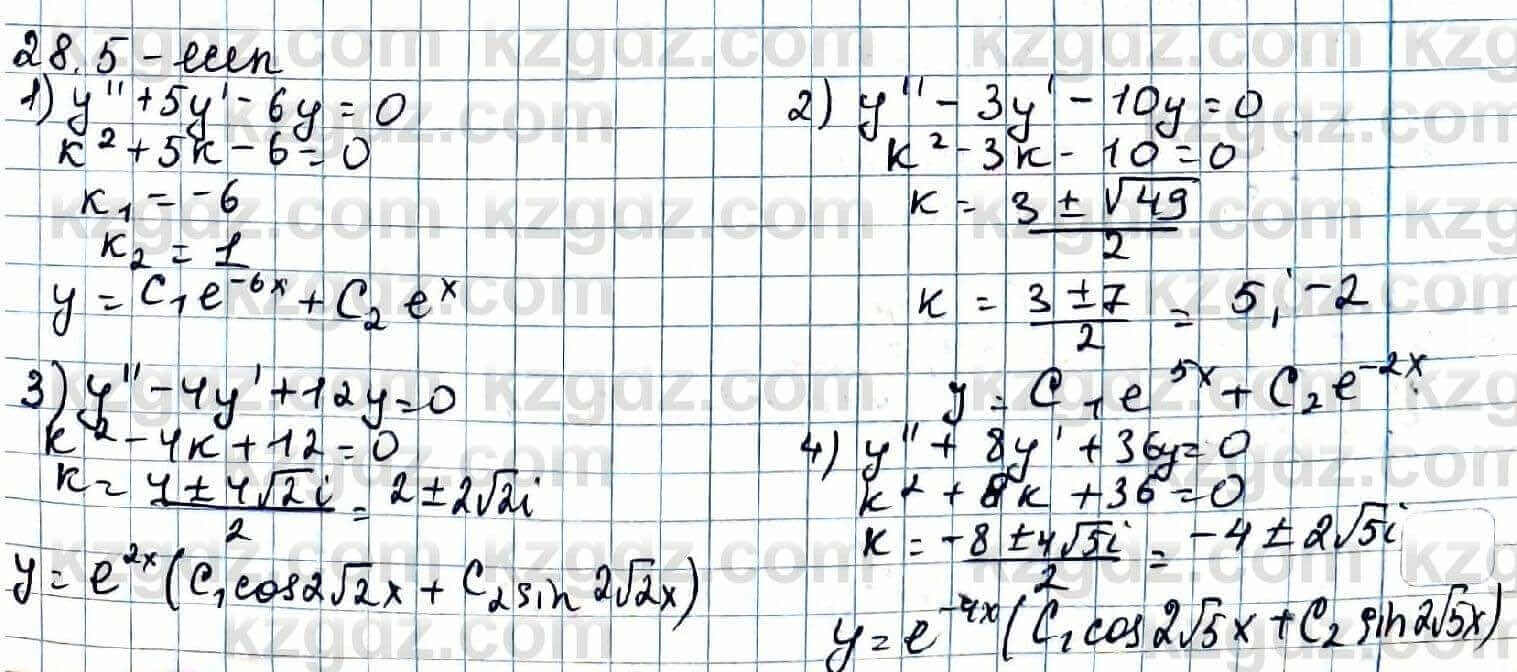 28.5-есеп
1) y'' + 5y' - 6y = 0
k² + 5k - 6 = 0
k₁ = -6
k₂ = 1
y = C₁e⁻⁶ˣ + C₂eˣ
2) y'' - 3y' - 10y = 0
k² - 3k - 10 = 0
k = (3 ± √49)/2
k = (3 ± 7)/2 = 5; -2
y = C₁e⁵ˣ + C₂e⁻²ˣ
3) y'' - 4y' + 12y = 0
k² - 4k + 12 = 0
k = (4 ± 4√2i)/2 = 2 ± 2√2i
y = e²ˣ(C₁cos2√2x + C₂sin2√2x)
4) y'' + 8y' + 36y = 0
k² + 8k + 36 = 0
k = (-8 ± 4√5i)/2 = -4 ± 2√5i
y = e⁻⁴ˣ(C₁cos2√5x + C₂sin2√5x)
kzgdz.com